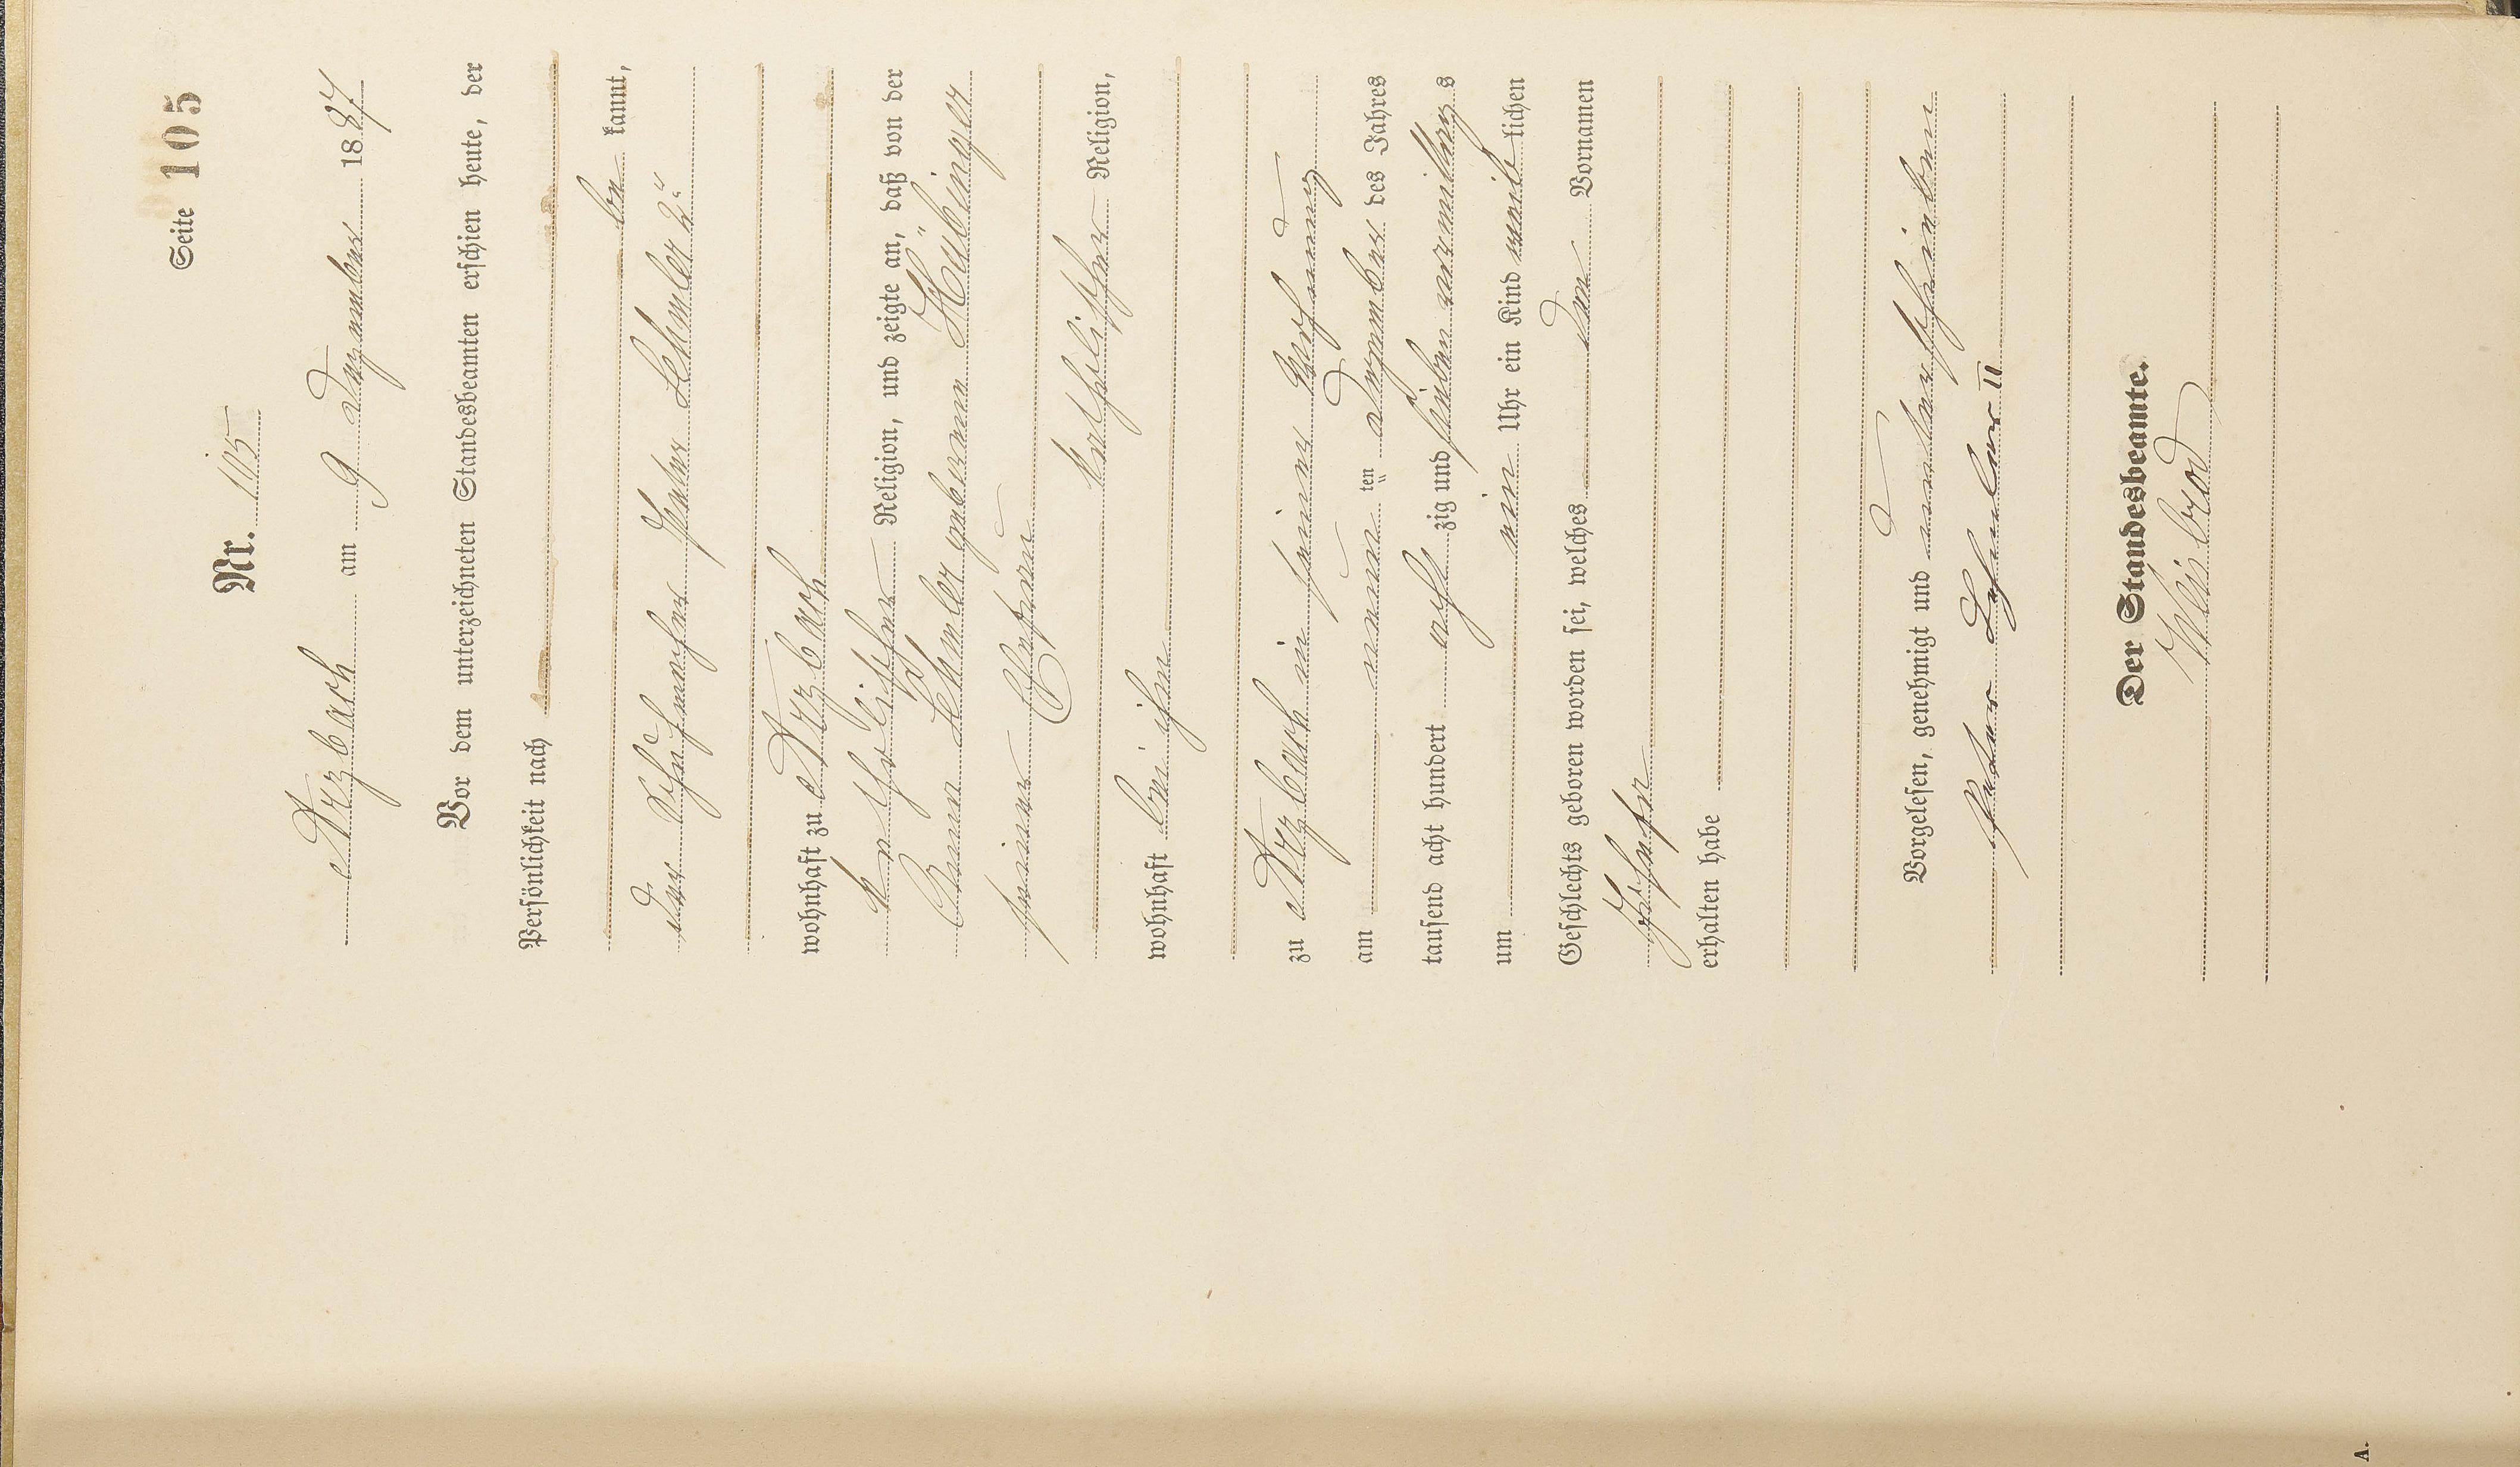 Seite 105
Nr. 105
Arzbach am 9 Dezember 1887
Vor dem unterzeichneten Standesbeamten erschien heute, der
Persönlichkeit nach
be kannt,
der Schuhmacher Peter Lehmler 2"
wohnhaft zu Arzbach
katholischer Religion, und zeigte an, daß von der
Lehmler geborenen Hübinger
seiner Ehefrau
katholischer Religion,
wohnhaft bei ihm
zu Arzbach in seiner Wohnung
am neun ten Dezember des Jahres
tausend acht hundert acht zig und sieben vormittags
um ein Uhr ein Kind weib lichen
Geschlechts geboren worden sei, welches den Vornamen
Josepha
erhalten habe
Vorgelesen, genehmigt und unterschrieben
Peter Lehmler II
Der Standesbeamte.
Weisbrod
A.